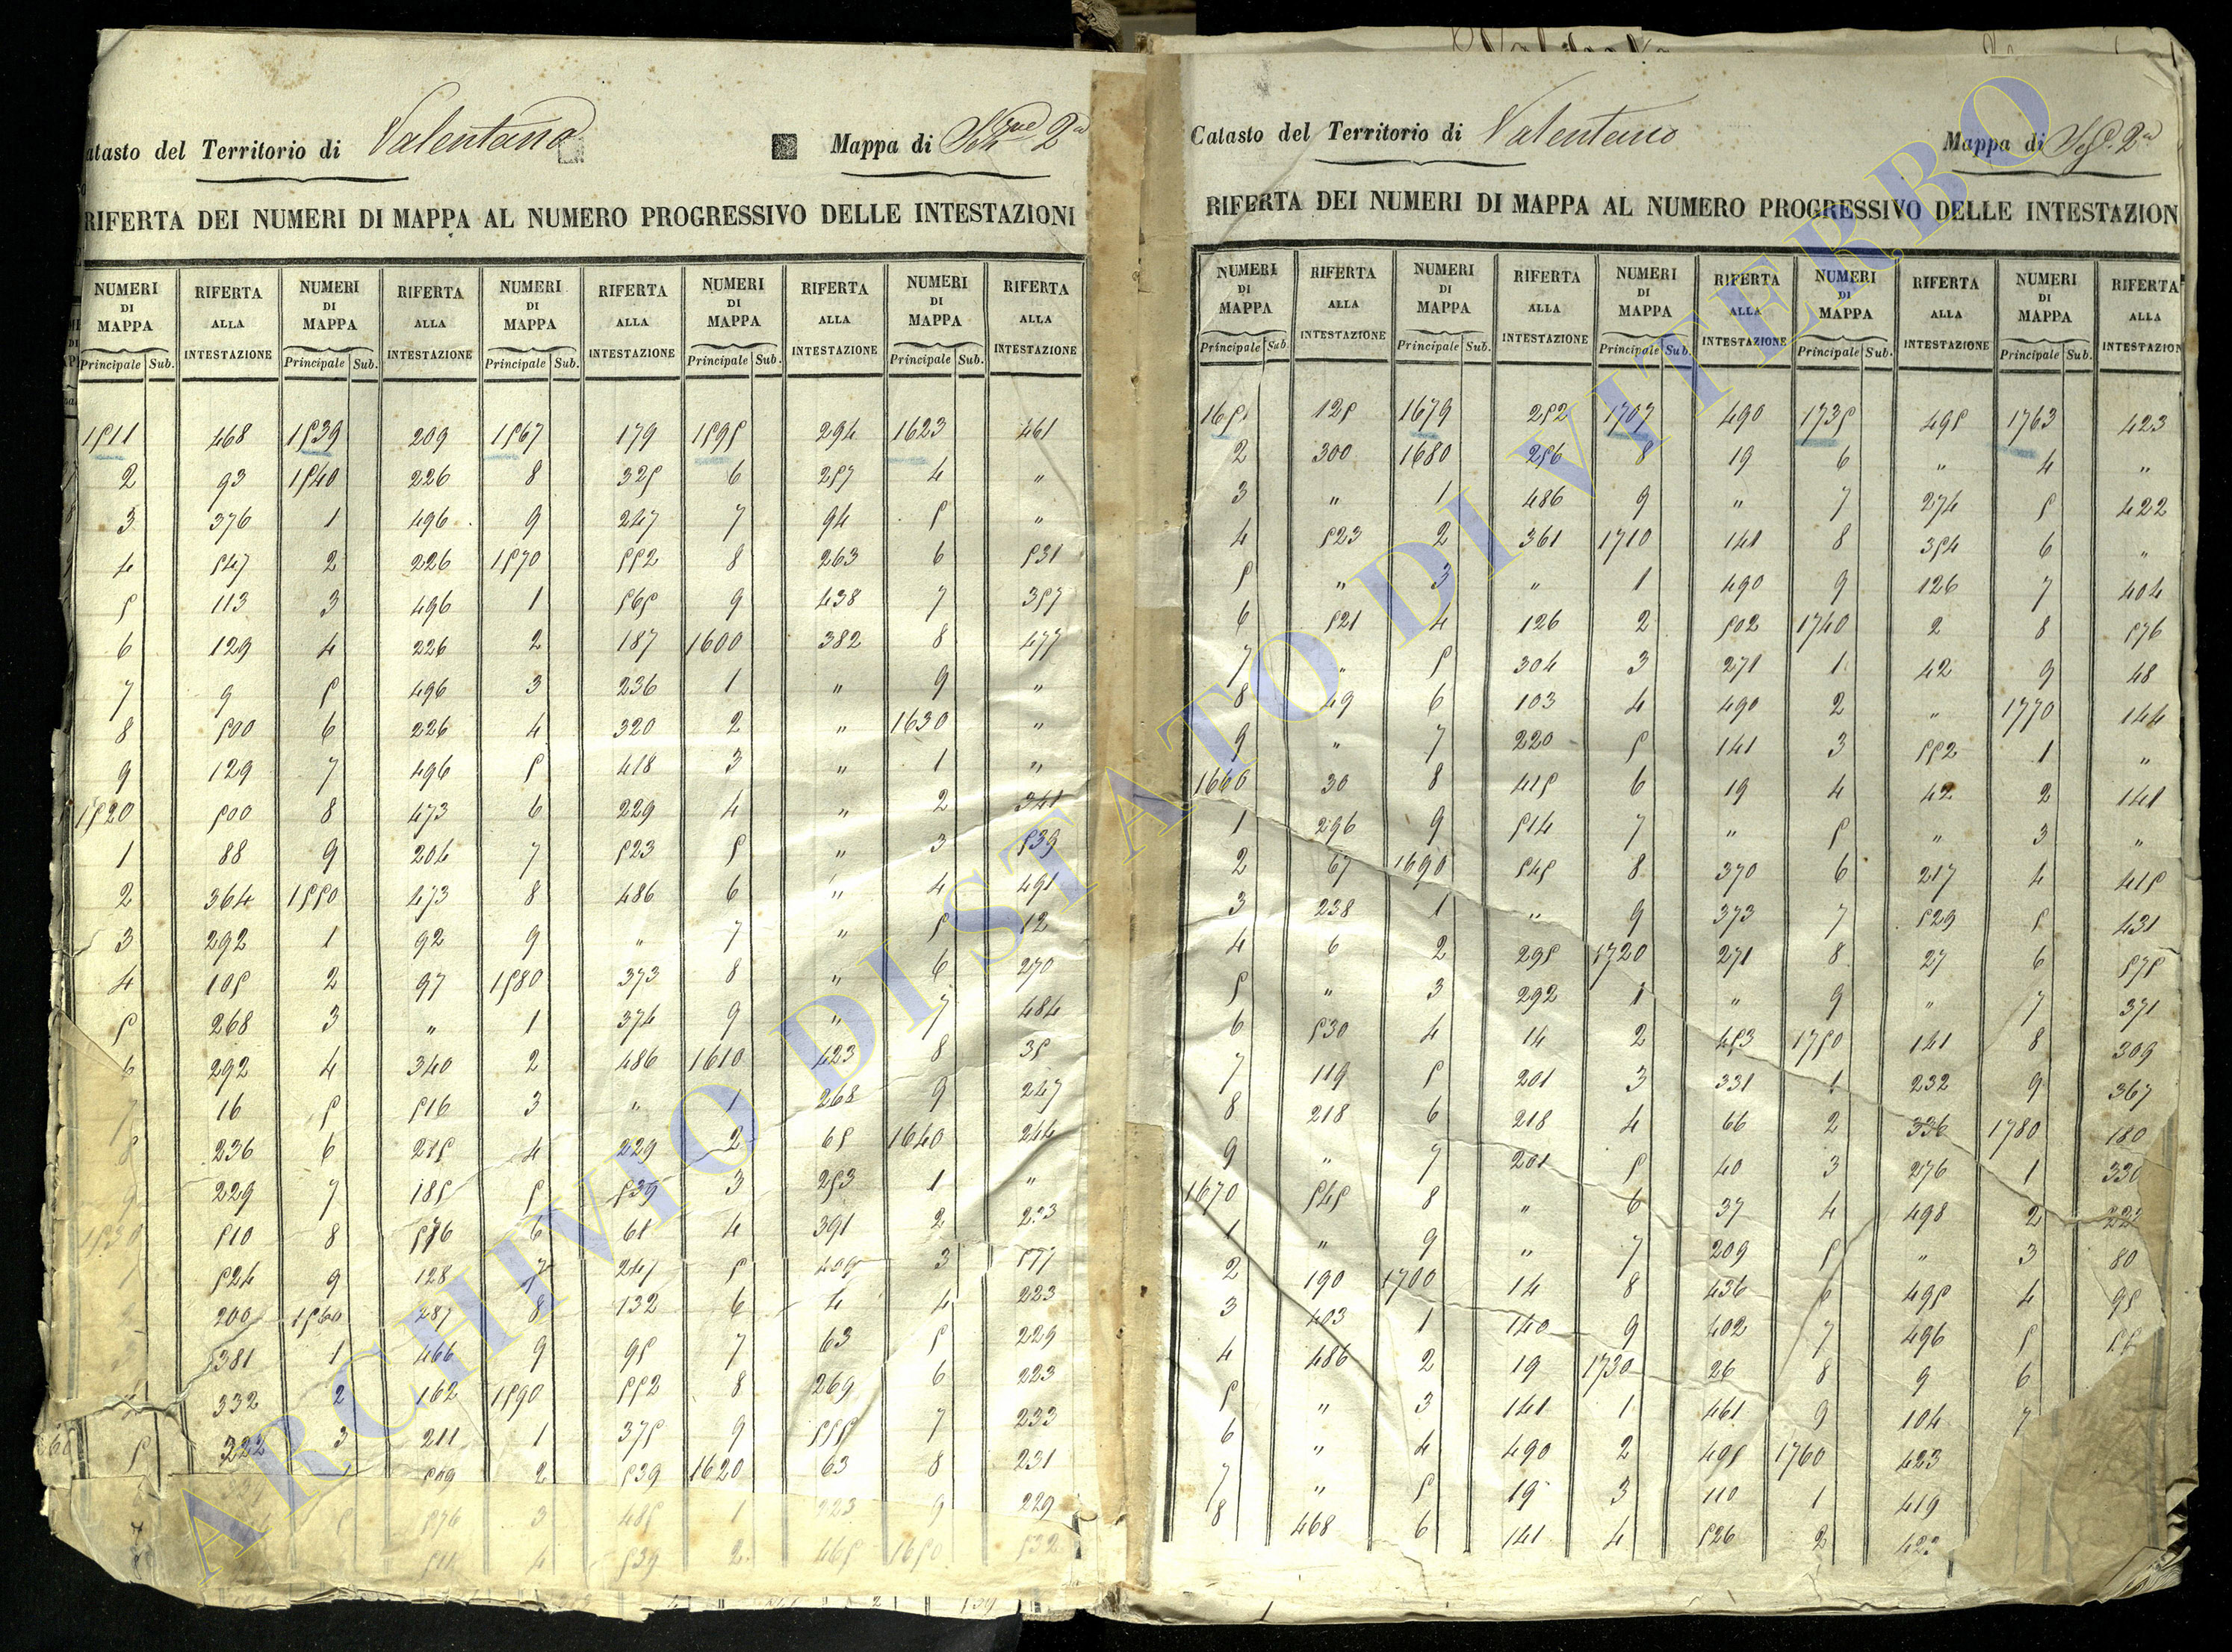 Catasto del Territorio di Valentano Mappa di Sez.ne 2a
RIFERTA DEI NUMERI DI MAPPA AL NUMERO PROGRESSIVO DELLE INTESTAZIONI
NUMERI RIFERTA NUMERI RIFERTA NUMERI RIFERTA NUMERI RIFERTA NUMERI RIFERTA
DI ALLA DI ALLA DI ALLA DI ALLA DI ALLA
MAPPA INTESTAZIONE MAPPA INTESTAZIONE MAPPA INTESTAZIONE MAPPA INTESTAZIONE MAPPA INTESTAZIONE
Principale Sub. Principale Sub. Principale Sub. Principale Sub. Principale Sub.
1511 468 1539 209 1567 179 1595 294 1623 461
2 93 1540 226 8 325 6 257 4 "
3 376 1 496 9 247 7 94 5 "
4 547 2 226 1570 552 8 263 6 531
5 113 3 496 1 565 9 438 7 357
6 129 4 226 2 187 1600 382 8 477
7 9 5 496 3 236 1 " 9 "
8 500 6 226 4 320 2 " 1630 "
9 129 7 496 5 418 3 " 1 "
1520 500 8 473 6 229 4 " 2 341
1 88 9 204 7 523 5 " 3 539
2 364 1550 473 8 486 6 " 4 491
3 292 1 92 9 " 7 " 5 12
4 105 2 97 1580 373 8 " 6 270
5 268 3 " 1 374 9 " 7 484
6 292 4 340 2 486 1610 423 8 35
7 16 5 516 3 " 1 268 9 247
8 236 6 215 4 229 2 65 1640 244
9 229 7 185 5 539 3 253 1 "
1530 510 8 576 6 61 4 391 2
1 524 9 128 7 247 5 409 3 577
200 1560 287 8 132 6 4 4 223
381 1 466 9 95 7 63 5 229
332 2 162 1590 552 8 269 6 223
5 322 3 211 1 375 9 555 7 233
509 2 539 1620 63 8 231
576 3 485 1 223 9 229
511 4 539 2 465 1650 532
Catasto del Territorio di Valentano Mappa di Sez. 2a
RIFERTA DEI NUMERI DI MAPPA AL NUMERO PROGRESSIVO DELLE INTESTAZION
NUMERI RIFERTA NUMERI RIFERTA NUMERI RIFERTA NUMERI RIFERTA NUMERI RIFERTA
DI ALLA DI ALLA DI ALLA DI ALLA DI ALLA
MAPPA INTESTAZIONE MAPPA INTESTAZIONE MAPPA INTESTAZIONE MAPPA INTESTAZIONE MAPPA INTESTAZION
Principale Sub. Principale Sub. Principale Sub. Principale Sub. Principale Sub.
1651 125 1679 252 1707 490 1735 495 1763 423
2 300 1680 256 8 19 6 " 4 "
3 " 1 486 9 " 7 274 5 422
4 523 2 361 1710 141 8 354 6 "
5 " 3 " 1 490 9 126 7 404
6 521 4 126 2 502 1740 2 8 576
7 " 5 304 3 271 1 42 9 48
8 49 6 103 4 490 2 " 1770 144
9 " 7 220 5 141 3 552 1 "
1660 30 8 415 6 19 4 42 2 141
1 296 9 514 7 " 5 " 3 "
2 67 1690 545 8 370 6 217 4 415
3 238 1 " 9 373 7 529 5 431
4 6 2 295 1720 271 8 27 6 575
5 " 3 292 1 " 9 " 7 371
6 530 4 14 2 453 1750 141 8 309
7 119 5 201 3 331 1 232 9 367
8 218 6 218 4 66 2 336 1780 180
9 " 7 201 5 40 3 276 1 330
1670 545 8 " 6 37 4 498 2
1 " 9 " 7 209 5 " 3 80
2 190 1700 14 8 436 6 495 4 95
3 403 1 140 9 402 7 496 5
4 486 2 19 1730 26 8 9 6
5 " 3 141 1 461 9 104 7
6 " 4 490 2 495 1760 423
7 " 5 19 3 110 1 419
8 468 6 141 4 526 2
ARCHIVIO DI STATO DI VITERBO